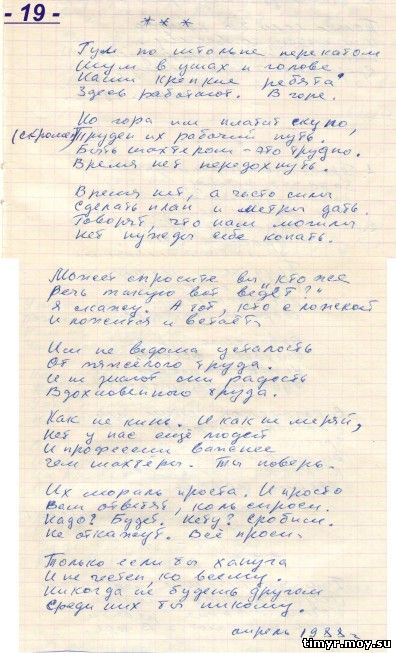 - 19 -
* * *
Гул по штольне перекатом
Шум в ушах и голове
Наши крепкие ребята
Здесь работают. В горе.
Но гора им платит скупо,
(скромен) Труден их рабочий путь.
Быть шахтером - это трудно.
Время нет передохнуть.
Время нет, а часто силы
Сделать план и метры дать.
Говорят, что нам могилы
Нет нужды себе копать.
Может спросите вы, "кто же
Речь такую вот ведёт?"
Я скажу. А тот, кто с ложкой
И ложится и встаёт.
Им не ведома усталость
От тяжёлого труда.
И не знают они радость
Вдохновенного труда.
Как не кинь. И как не меряй,
Нет у нас ещё людей
И профессии важнее
Чем шахтёры. Ты поверь.
Их мораль проста. И просто
Вам ответят, коль спроси.
Надо? Будет. Нету? Сробим.
Не откажут. Всё проси.
Только если ты хапуга
И не честен, ко всему.
Никогда не будешь другом
Среди них ты никому.
апрель 1988 г.
timyr.moy.su